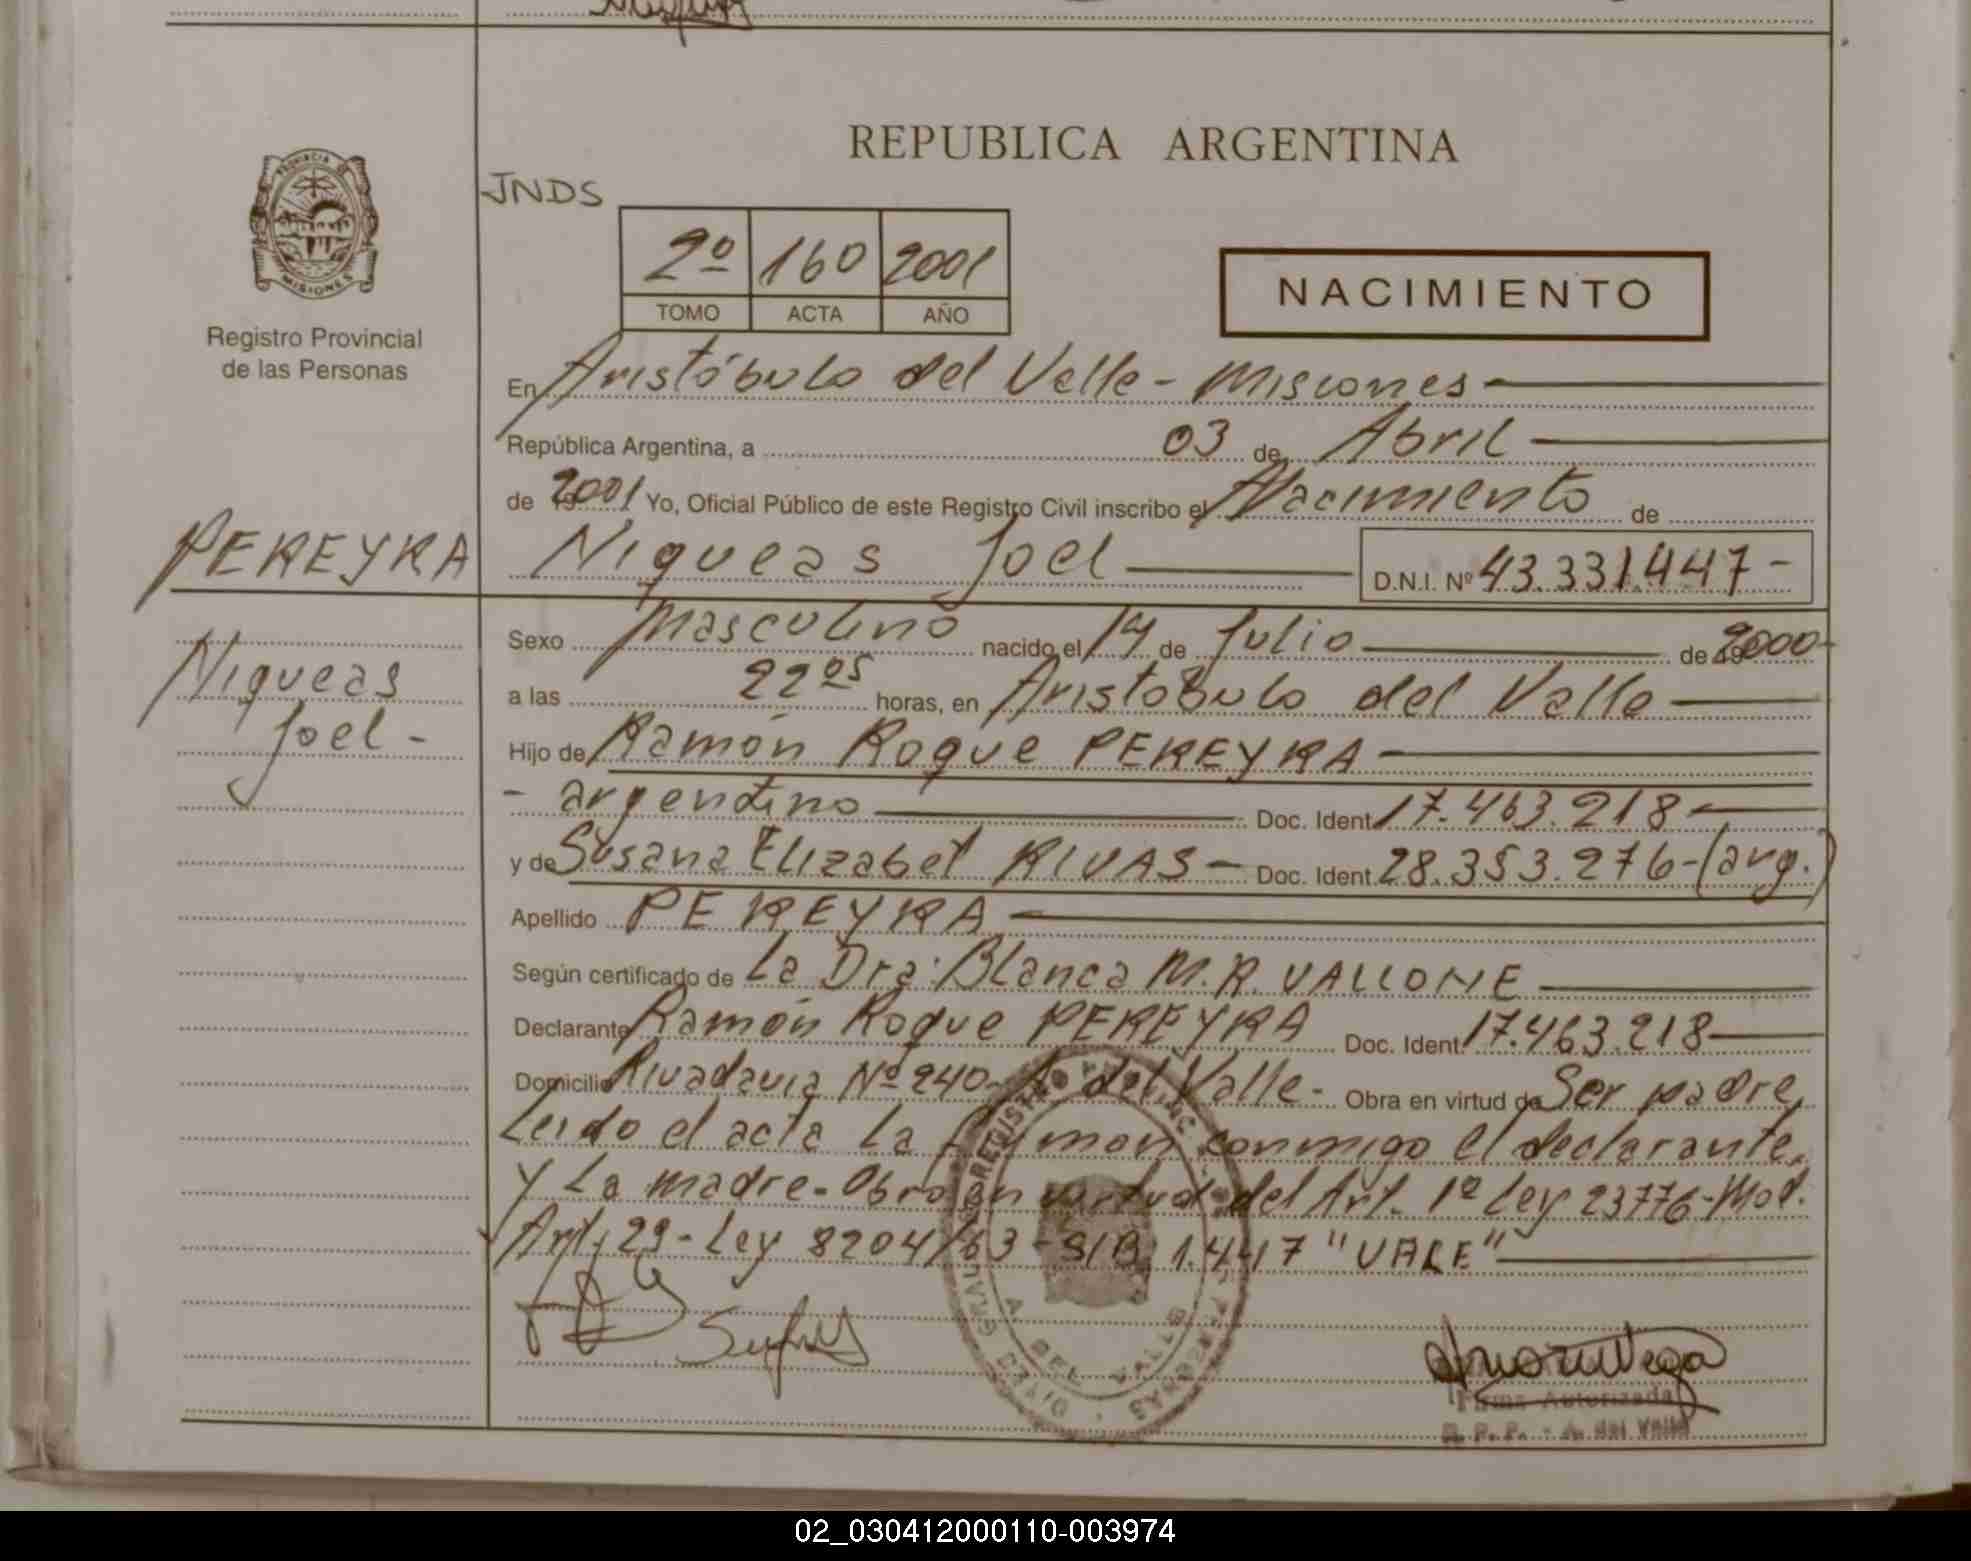 REPUBLICA ARGENTINA
PROVINCIA DE
MISIONES
JNDS
2º 160 2001
TOMO ACTA AÑO
NACIMIENTO
Registro Provincial
de las Personas
En Aristóbulo del Valle - Misiones
República Argentina, a 03 de Abril
de 2001 Yo, Oficial Público de este Registro Civil inscribo el Nacimiento de
PEREYRA
Niqueas Joel D.N.I. Nº 43.331.447-
Niqueas
Joel-
Sexo Masculino nacido el 14 de Julio de 2000-
a las 22 05 horas, en Aristóbulo del Valle
Hijo de Ramón Roque PEREYRA
- argentino Doc. Ident. 17.463.218-
y de Susana Elizabet RIVAS - Doc. Ident. 28.353.276-(arg.)
Apellido PEREYRA
Según certificado de La Dra. Blanca M.R. VALLONE
Declarante Ramón Roque PEREYRA Doc. Ident. 17.463.218
Domicilio Rivadavia Nº 240- A. del Valle- Obra en virtud de Ser padre,
Leido el acta la firman conmigo el declarante,
y La madre- Obro en virtud del Art. 1º Ley 23776-Mod.
Art. 29- Ley 8204/63 - S/B: 1.447 "VALE"
A. DEL VALLE
Firma Autorizada
R. P. P. - A. del Valle
02_030412000110-003974